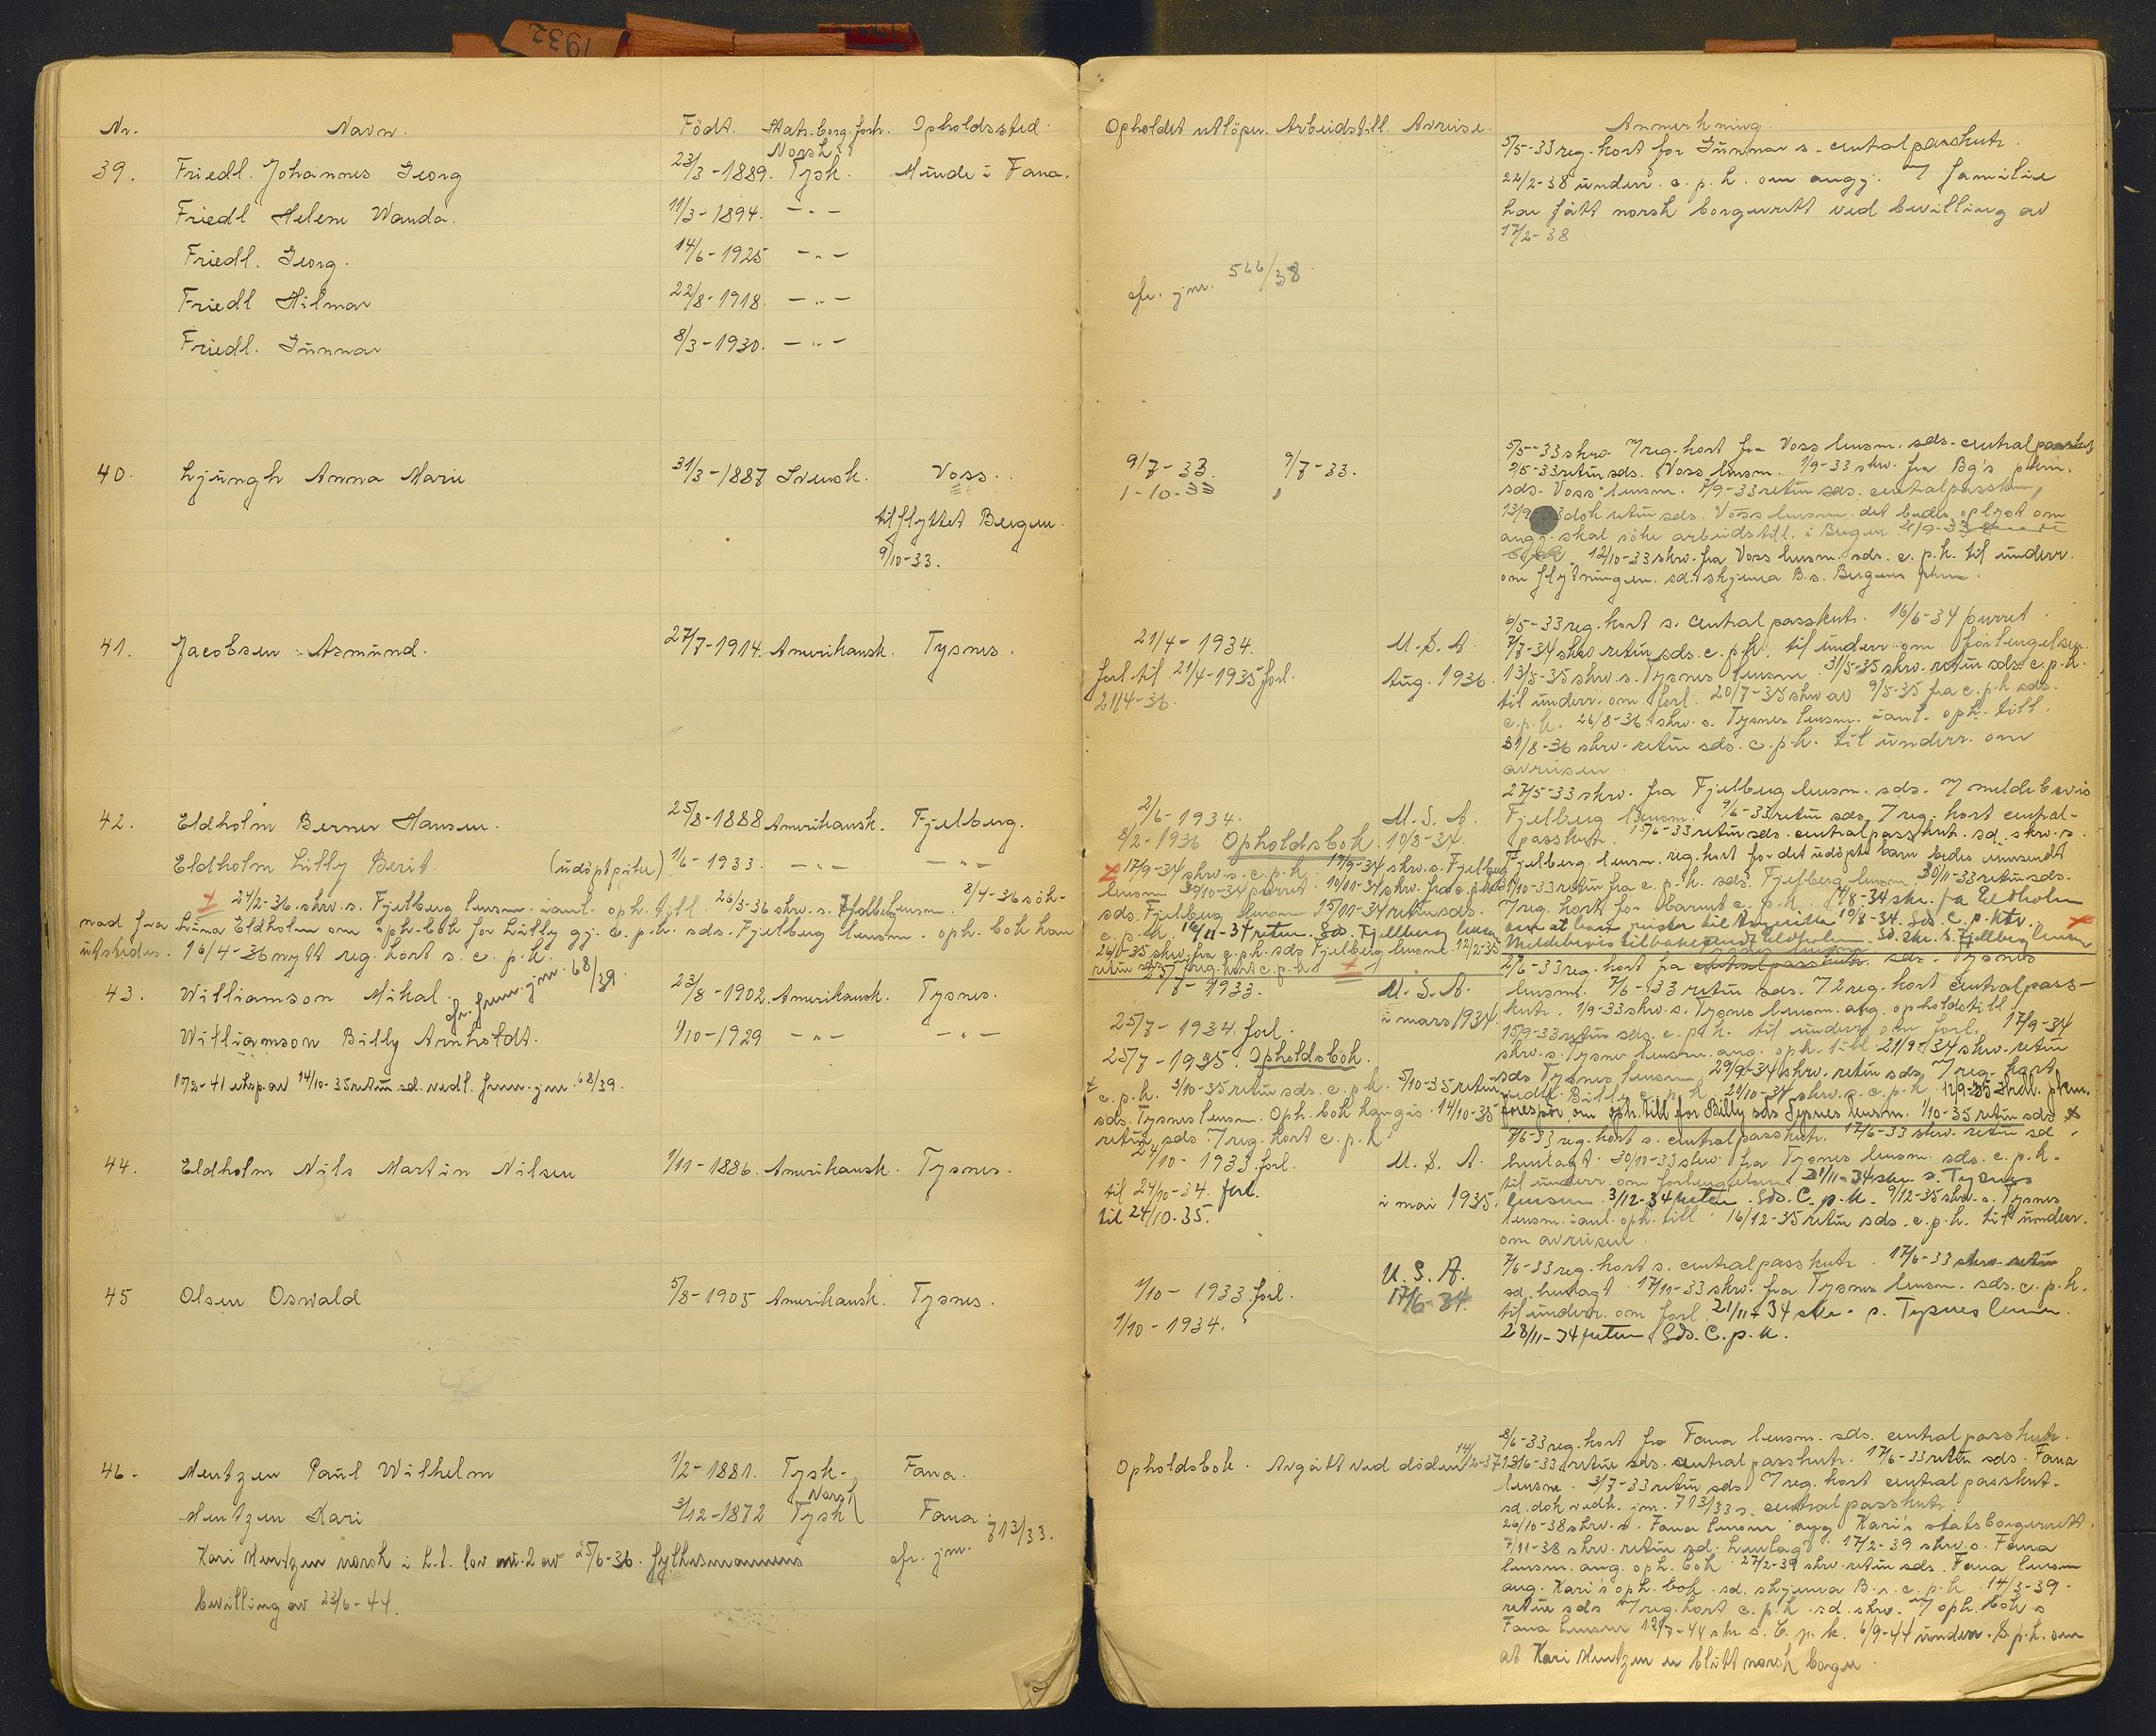 1932
Nr. Navn. Födt. Stats.borg.forh. Opholdssted.
39. Friedl. Johannes Georg 23/3-1889. Norsk Tysk. Minde i Fana.
Friedl Helene Wanda. 11/3-1894. -"-
Friedl. Georg. 14/6-1925 -"-
Friedl Hilmar 22/8-1918. -"-
Friedl. Gunnar 8/3-1930. -"-
40. Ljungh Anna Marie 31/3-1887 Svensk. Voss.
tilflyttet Bergen.
9/10-33.
41. Jacobsen Asmund. 27/7-1914. Amerikansk. Tysnes.
42. Eldholm Berner Hansen. 25/8-1888 Amerikansk. Fjelberg.
Eldholm Lilly Berit. (udöpt pike) 1/6-1933. -"- -"-
24/2-36 skrv. s. Fjelberg lensm. anl. oph. till. 26/3-36 skrv. s. Fjelberg lensm. 8/4-36 sök-
nad fra Lina Eldholm om oph-bok for Lilly gj. c.p.k. sds. Fjelberg lensm. oph. bok kan
utstedes. 16/4-36 nytt reg. kort s. c.p.k.
43. Williamson Mikal. cfr. frem. jnr. 68/39. 23/8-1902. Amerikansk. Tysnes.
Williamson Billy Arnholdt. 1/10-1929 -"- -"-
17/2-41 utsp. av 14/10-35 retur sd. vedl. frem. jnr. 68/39.
44. Eldholm Nils Martin Nilsen 1/11-1886. Amerikansk. Tysnes.
45 Olsen Oswald 5/8-1905 Amerikansk. Tysnes.
46. Mentzen Paul Wilhelm 1/2-1881. Tysk. Fana.
Mentzen Kari 3/12-1872 Norsk Tysk Fana.
Kari Mentzen norsk i h.t. lov nr. 2 av 25/6-36. fylkesmannens cfr. jnr. 713/33.
bevilling av 23/6-44.
Opholdet utlöper. Arbeidstill. Avreise. Anmerkning.
5/5-33 reg. kort for Gunnar s. centralpasskntr.
22/2-38 underr. c.p.k. om angj. m/ familie
har fått norsk borgerrett ved bevilling av
17/2-38
cfr. jnr. 566/38
9/7-33. 9/7-33.
1-10-33
5/5-33 skrv. m/reg. kort fra Voss lensm. sds. centralpasskntr
9/5-33 retur sds. Voss lensm. 1/9-33 skrv. fra Bg's pkm.
sds. Voss lensm. 7/9-33 retur sds. centralpasskn,
dok retur sds. Voss lensm. det bedes oplyst om
ang. skal söke arbeidstill. i Bergen
12/10-33 skrv. fra Voss lensm. sds. c.p.k. til underr.
om flytningen. sd. skjema B. s. Bergens pkm.
21/4-1934. U.S.A.
forl til 21/4-1935 forl. Aug. 1936.
21/4-36.
6/5-33 reg. kort s. centralpasskntr. 16/6-34 purret.
7/7-34 skrv retur sds. c.p.k. til underr om forlengelsen.
13/5-35 skrv. s. Tysnes lensm. 31/5-35 skrv. retur sds. c.p.k.
til underr. om forl. 20/7-35 skrv av 9/5-35 fra c.p.k sds.
c.p.k. 26/8-36 skrv. s. Tysnes lensm. anl. oph. till.
31/8-36 skrv. retur sds. c.p.k. til underr. om
avreisen.
2/6-1934. U.S.A.
8/2-1936 Opholdsbok. 10/8-34.
27/5-33 skrv. fra Fjelberg lensm. sds. m/ meldebevis
Fjelberg lensm. 9/6-33 retur sds. 7 reg. kort central-
passkntr. 15/6-33 retur sds. centralpasskntr. sd. skrv. s.
Fjelberg lensm. reg. kort for det udöpte barn bedes innsendt
17/9-34 skrv. s. c.p.k. 19/9-34 skrv. s. Fjelberg
lensm 30/10-34 purret. 10/11-34 skrv. fra c.p.k.
sds. Fjelberg lensm 15/11-34 retur sds.
c.p.k. 16/11-34 retur. Sds. Fjellberg lensm
26/1-35 skrv. fra c.p.k. sds Fjelberg lensm. 12/2-35
retur sds 7 reg. kort c.p.k.
retur fra c.p.k. sds. Fjelberg lensm 30/11-33 retur sds.
7 reg. kort for barnet c.p.k. 14/8-34 skr. fra Eldholm
om at han reiser til Amerika. 10/8-34. Sds. C.p.ktr.
Meldebevis tilbakesendt Eldholm. Sd. skr. s. Fjellberg lensm
25/7-1933. U.S.A.
25/7-1934. forl. i mars 1934.
25/7-1935. Opholdsbok.
2/6-33 reg. kort fra centralpasskntr. sds. Tysnes
lensm. 7/6-33 retur sds. 7 2 reg. kort centralpass-
kntr. 1/9-33 skrv. s. Tysnes lensm. ang. opholdstill.
15/9-33 retur sds. c.p.k. til underr om forl. 17/9-34
skrv. s. Tysnes lensm. ang. oph. till. 21/9-34 skrv. retur
sds Tysnes lensm. 29/9-34 skrv. retur sds m/ reg. kort
vedk. Billy c.p.k. 29/10-34 skrv. s. c.p.k. 12/9-35 skrv. pkm.
forespör. om oph. till for Billy sds Tysnes lensm. 1/10-35 retur sds
c.p.k. 3/10-35 retur sds. c.p.k. 5/10-35 retur
sds. Tysnes lensm. Oph. bok kan gis. 14/10-35
retur sds. 7 reg. kort c.p.k
24/10-1933. forl. U.S.A.
til 24/10-34. forl. i mai 1935.
til 24/10-35.
7/6-33 reg. kort s. centralpasskntr. 17/6-33 skrv. retur sd.
henlagt. 30/10-33 skrv. fra Tysnes lensm. sds. c.p.k.
til underr. om forlengelsen. 21/11-34 skr. s. Tysnes
lensm. 3/12-34 retur. Sds. C.p.k. 9/12-35 skrv. s. Tysnes
lensm. anl. oph. till. 16/12-35 retur sds. c.p.k. til underr.
om avreisen.
1/10-1933 forl. U.S.A.
1/10-1934. 17/6-34.
7/6-33 reg. kort s. centralpasskntr. 17/6-33 skrv. retur
sd. henlagt. 17/10-33 skrv. fra Tysnes lensm. sds. c.p.k.
til underr. om forl. 21/11-34 skr. s. Tysnes lensm.
28/11-34 retur Sds. C.p.k.
Opholdsbok. Avgått ved döden 14/2-37.
8/6-33 reg. kort fra Fana lensm. sds. centralpasskntr.
13/6-33 retur sds. centralpasskntr. 17/6-33 retur sds. Fana
lensm. 3/7-33 retur sds. 7 reg. kort centralpassknt.
sd. dok vedk. jnr. 713/33 s. centralpasskntr.
26/10-38 skrv. s. Fana lensm ang Kari's statsborgerrett.
7/11-38 skrv. retur sd. henlagt. 17/2-39 skrv. s. Fana
lensm. ang. oph. bok. 27/2-39 skrv. retur sds. Fana lensm
ang. Kari's oph. bok. sd. skjema B. s. c.p.k. 14/3-39.
retur sds m/ reg. kort c.p.k. sd. skrv. m/ oph. bok s
Fana lensm 12/7-44 skr s. C.p.k. 6/9-44 underr. S.p.k. om
at Kari Mentzen er blitt norsk borger.